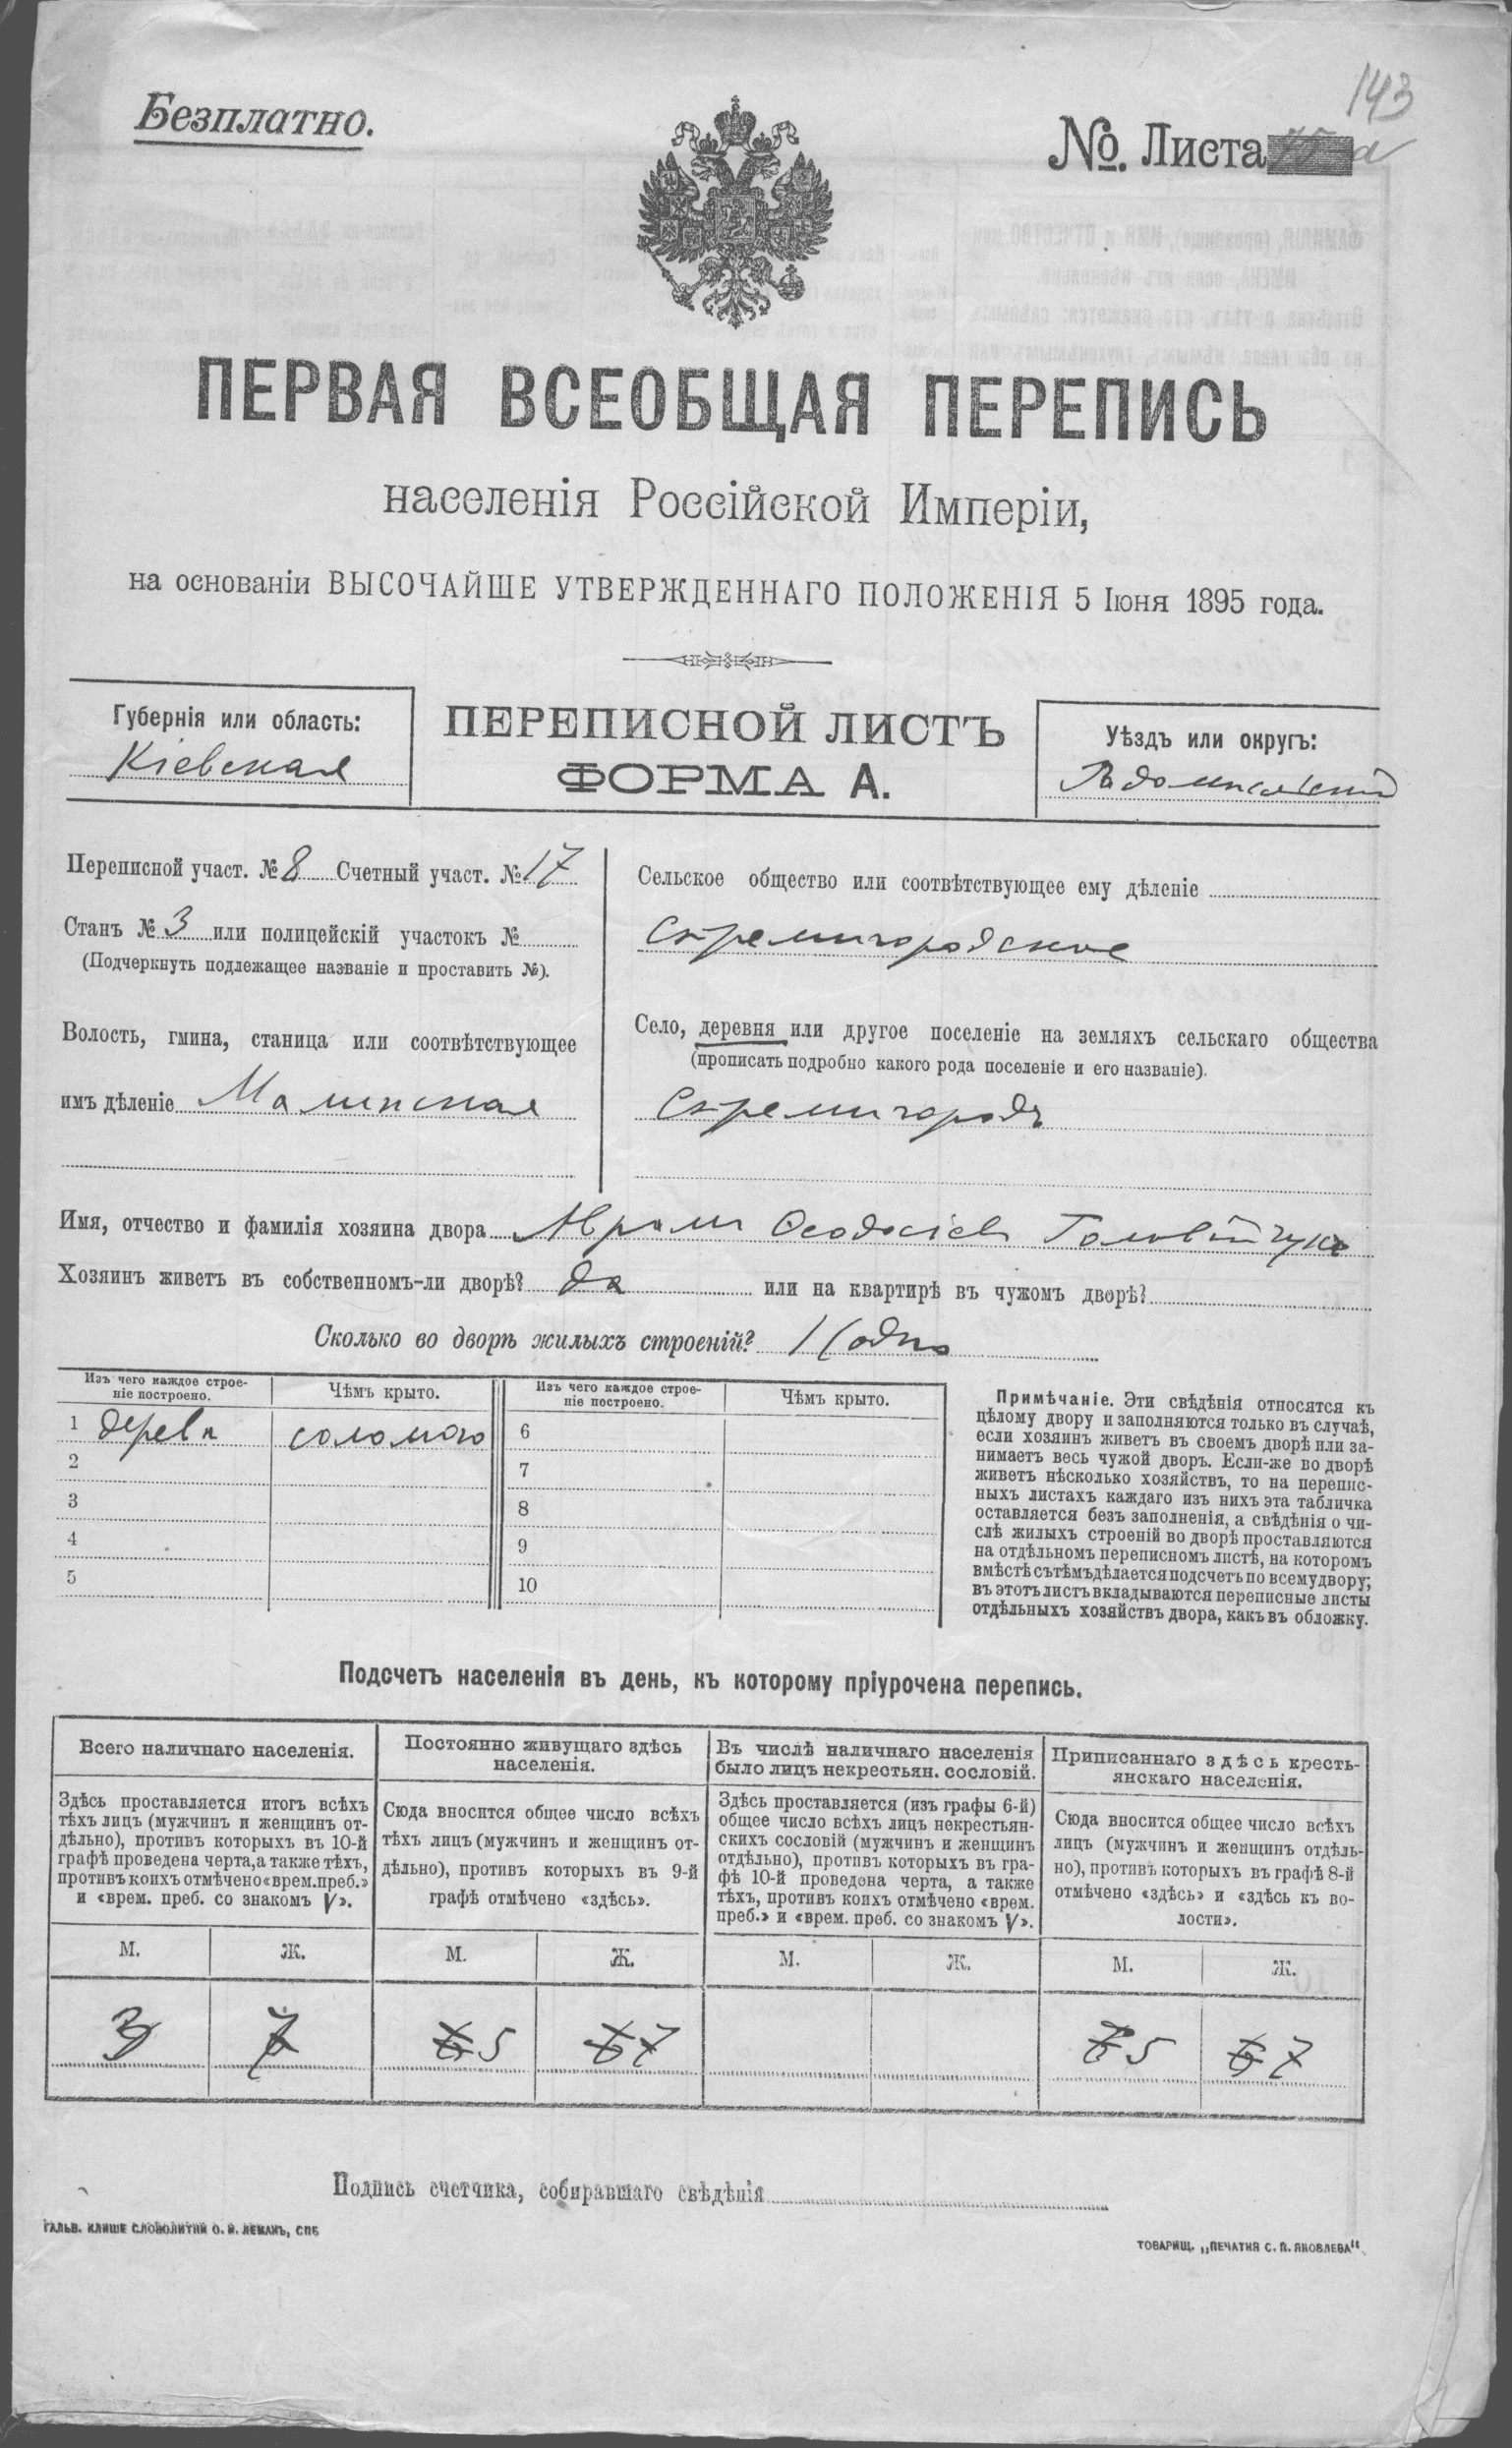 143
Безплатно.
№. Листа а
ПЕРВАЯ ВСЕОБЩАЯ ПЕРЕПИСЬ
населенія Россійской Имперіи,
на основаніи ВЫСОЧАЙШЕ УТВЕРЖДЕННАГО ПОЛОЖЕНІЯ 5 Іюня 1895 года.
Губернія или область:
Кіевская
ПЕРЕПИСНОЙ ЛИСТЪ
ФОРМА А.
Уѣздъ или округъ:
Радомысльскій
Переписной участ. № 8 Счетный участ. № 17
Станъ № 3 или полицейскій участокъ №
(Подчеркнуть подлежащее названіе и проставить №).
Волость, гмина, станица или соотвѣтствующее
имъ дѣленіе Малинская
Сельское общество или соотвѣтствующее ему дѣленіе
Скремигородское
Село, деревня или другое поселеніе на земляхъ сельскаго общества
(прописать подробно какого рода поселеніе и его названіе).
Скремигородъ
Имя, отчество и фамилія хозяина двора Аврам Феодосіев
Хозяинъ живетъ въ собственномъ-ли дворѣ? да или на квартирѣ въ чужомъ дворѣ?
Сколько во дворѣ жилыхъ строеній? 1 (одно
Изъ чего каждое строе-
ніе построено.
Чѣмъ крыто.
Изъ чего каждое строе-
ніе построено.
Чѣмъ крыто.
1 дерева соломою 6
2 7
3 8
4 9
5 10
Примѣчаніе. Эти свѣдѣнія относятся къ
цѣлому двору и заполняются только въ случаѣ,
если хозяинъ живетъ въ своемъ дворѣ или за-
нимаетъ весь чужой дворъ. Если-же во дворѣ
живетъ нѣсколько хозяйствъ, то на перепис-
ныхъ листахъ каждаго изъ нихъ эта табличка
оставляется безъ заполненія, а свѣдѣнія о чи-
слѣ жилыхъ строеній во дворѣ проставляются
на отдѣльномъ переписномъ листѣ, на которомъ
вмѣстѣ съ тѣмъ дѣлается подсчетъ по всему двору;
въ этотъ листъ вкладываются переписные листы
отдѣльныхъ хозяйствъ двора, какъ въ обложку.
Подсчетъ населенія въ день, къ которому пріурочена перепись.
Всего наличнаго населенія.
Здѣсь проставляется итогъ всѣхъ
тѣхъ лицъ (мужчинъ и женщинъ от-
дѣльно), противъ которыхъ въ 10-й
графѣ проведена черта, а также тѣхъ,
противъ коихъ отмѣчено «врем. преб.»
и «врем. преб. со знакомъ V».
Постоянно живущаго здѣсь
населенія.
Сюда вносится общее число всѣхъ
тѣхъ лицъ (мужчинъ и женщинъ от-
дѣльно), противъ которыхъ въ 9-й
графѣ отмѣчено «здѣсь».
Въ числѣ наличнаго населенія
было лицъ некрестьян. сословій.
Здѣсь проставляется (изъ графы 6-й)
общее число всѣхъ лицъ некрестьян-
скихъ сословій (мужчинъ и женщинъ
отдѣльно), противъ которыхъ въ гра-
фѣ 10-й проведена черта, а также
тѣхъ, противъ коихъ отмѣчено «врем.
преб.» и «врем. преб. со знакомъ V».
Приписаннаго здѣсь кресть-
янскаго населенія.
Сюда вносится общее число всѣхъ
лицъ (мужчинъ и женщинъ отдѣль-
но), противъ которыхъ въ графѣ 8-й
отмѣчено «здѣсь» и «здѣсь къ во-
лости».
М. Ж. М. Ж. М. Ж. М. Ж.
3 7 5 7 5 7
Подпись счетчика, собиравшаго свѣдѣнія
ГАЛЬВ. КЛИШЕ СЛОВОЛИТНИ О. И. ЛЕМАНЪ, СПБ
ТОВАРИЩ. „ПЕЧАТНЯ С. П. ЯКОВЛЕВА"